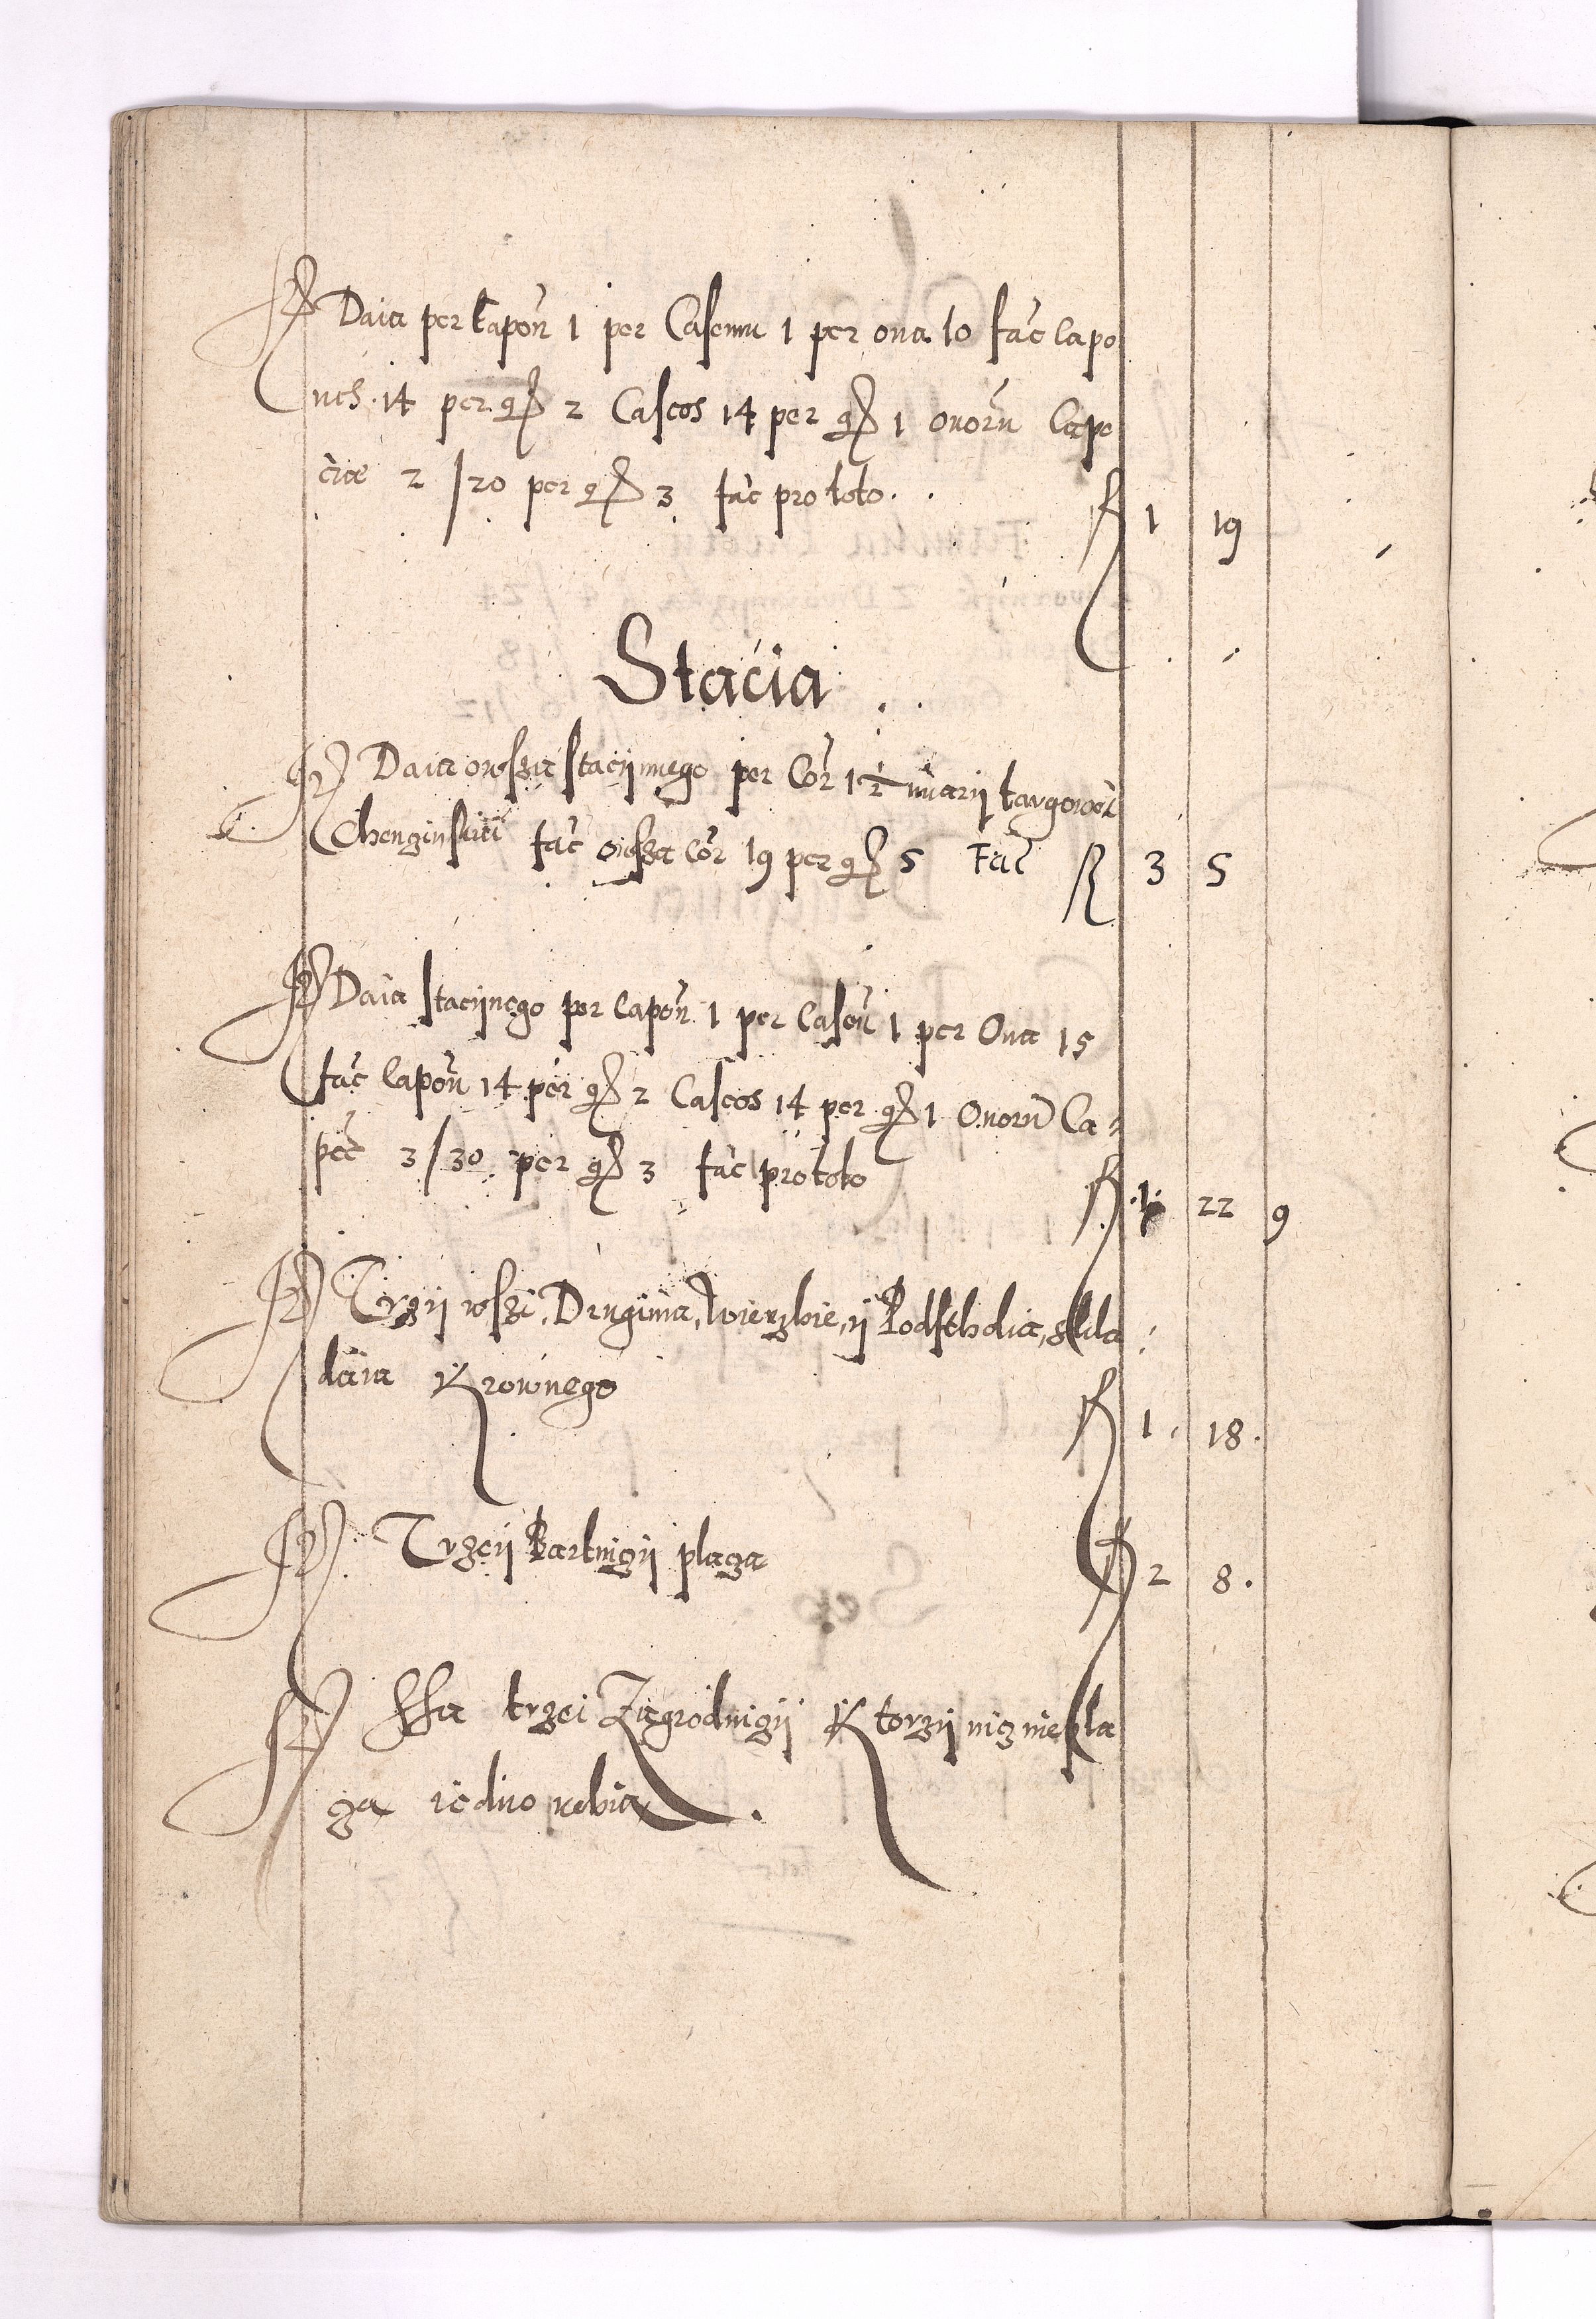 Daia per capon 1 per Caseum 1 per ova 10 fac capo
nes 14 per gr 2 Caseos 14 per gr 1 ovoru Cape
cia 2/20 per gr 3 fac pro toto . . f 1 19
Stacia
Daia owsza staciinnego per Cor 1 targowei
Chenginskiei fac owsza cor 19 per gr 5 Fac f 3 5
Daia staciinego per capon 1 per caseu 1 per Ova 15
fac capon 14 per gr 2 Caseos 14 per gr 1 Ovoru Ca=
pec 3/30 per gr 3 fac pro toto f 1 22 9
Trzy wszi, Drugima, Wierzbie, y Podscholia, skla
daia Krownego f 1 18.
Trzey Bartnizy plaza f 2 8.
Ssa trzei Zagrodnizy Ktorzy niz niepla
za iedno robia .